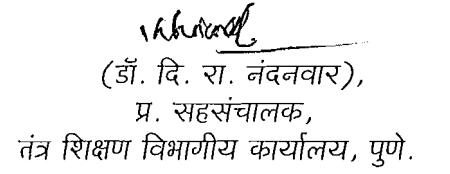 (डॉ. दि. रा. नंदनवार),
प्र. सहसंचालक,
तंत्र शिक्षण विभागीय कार्यालय, पुणे.